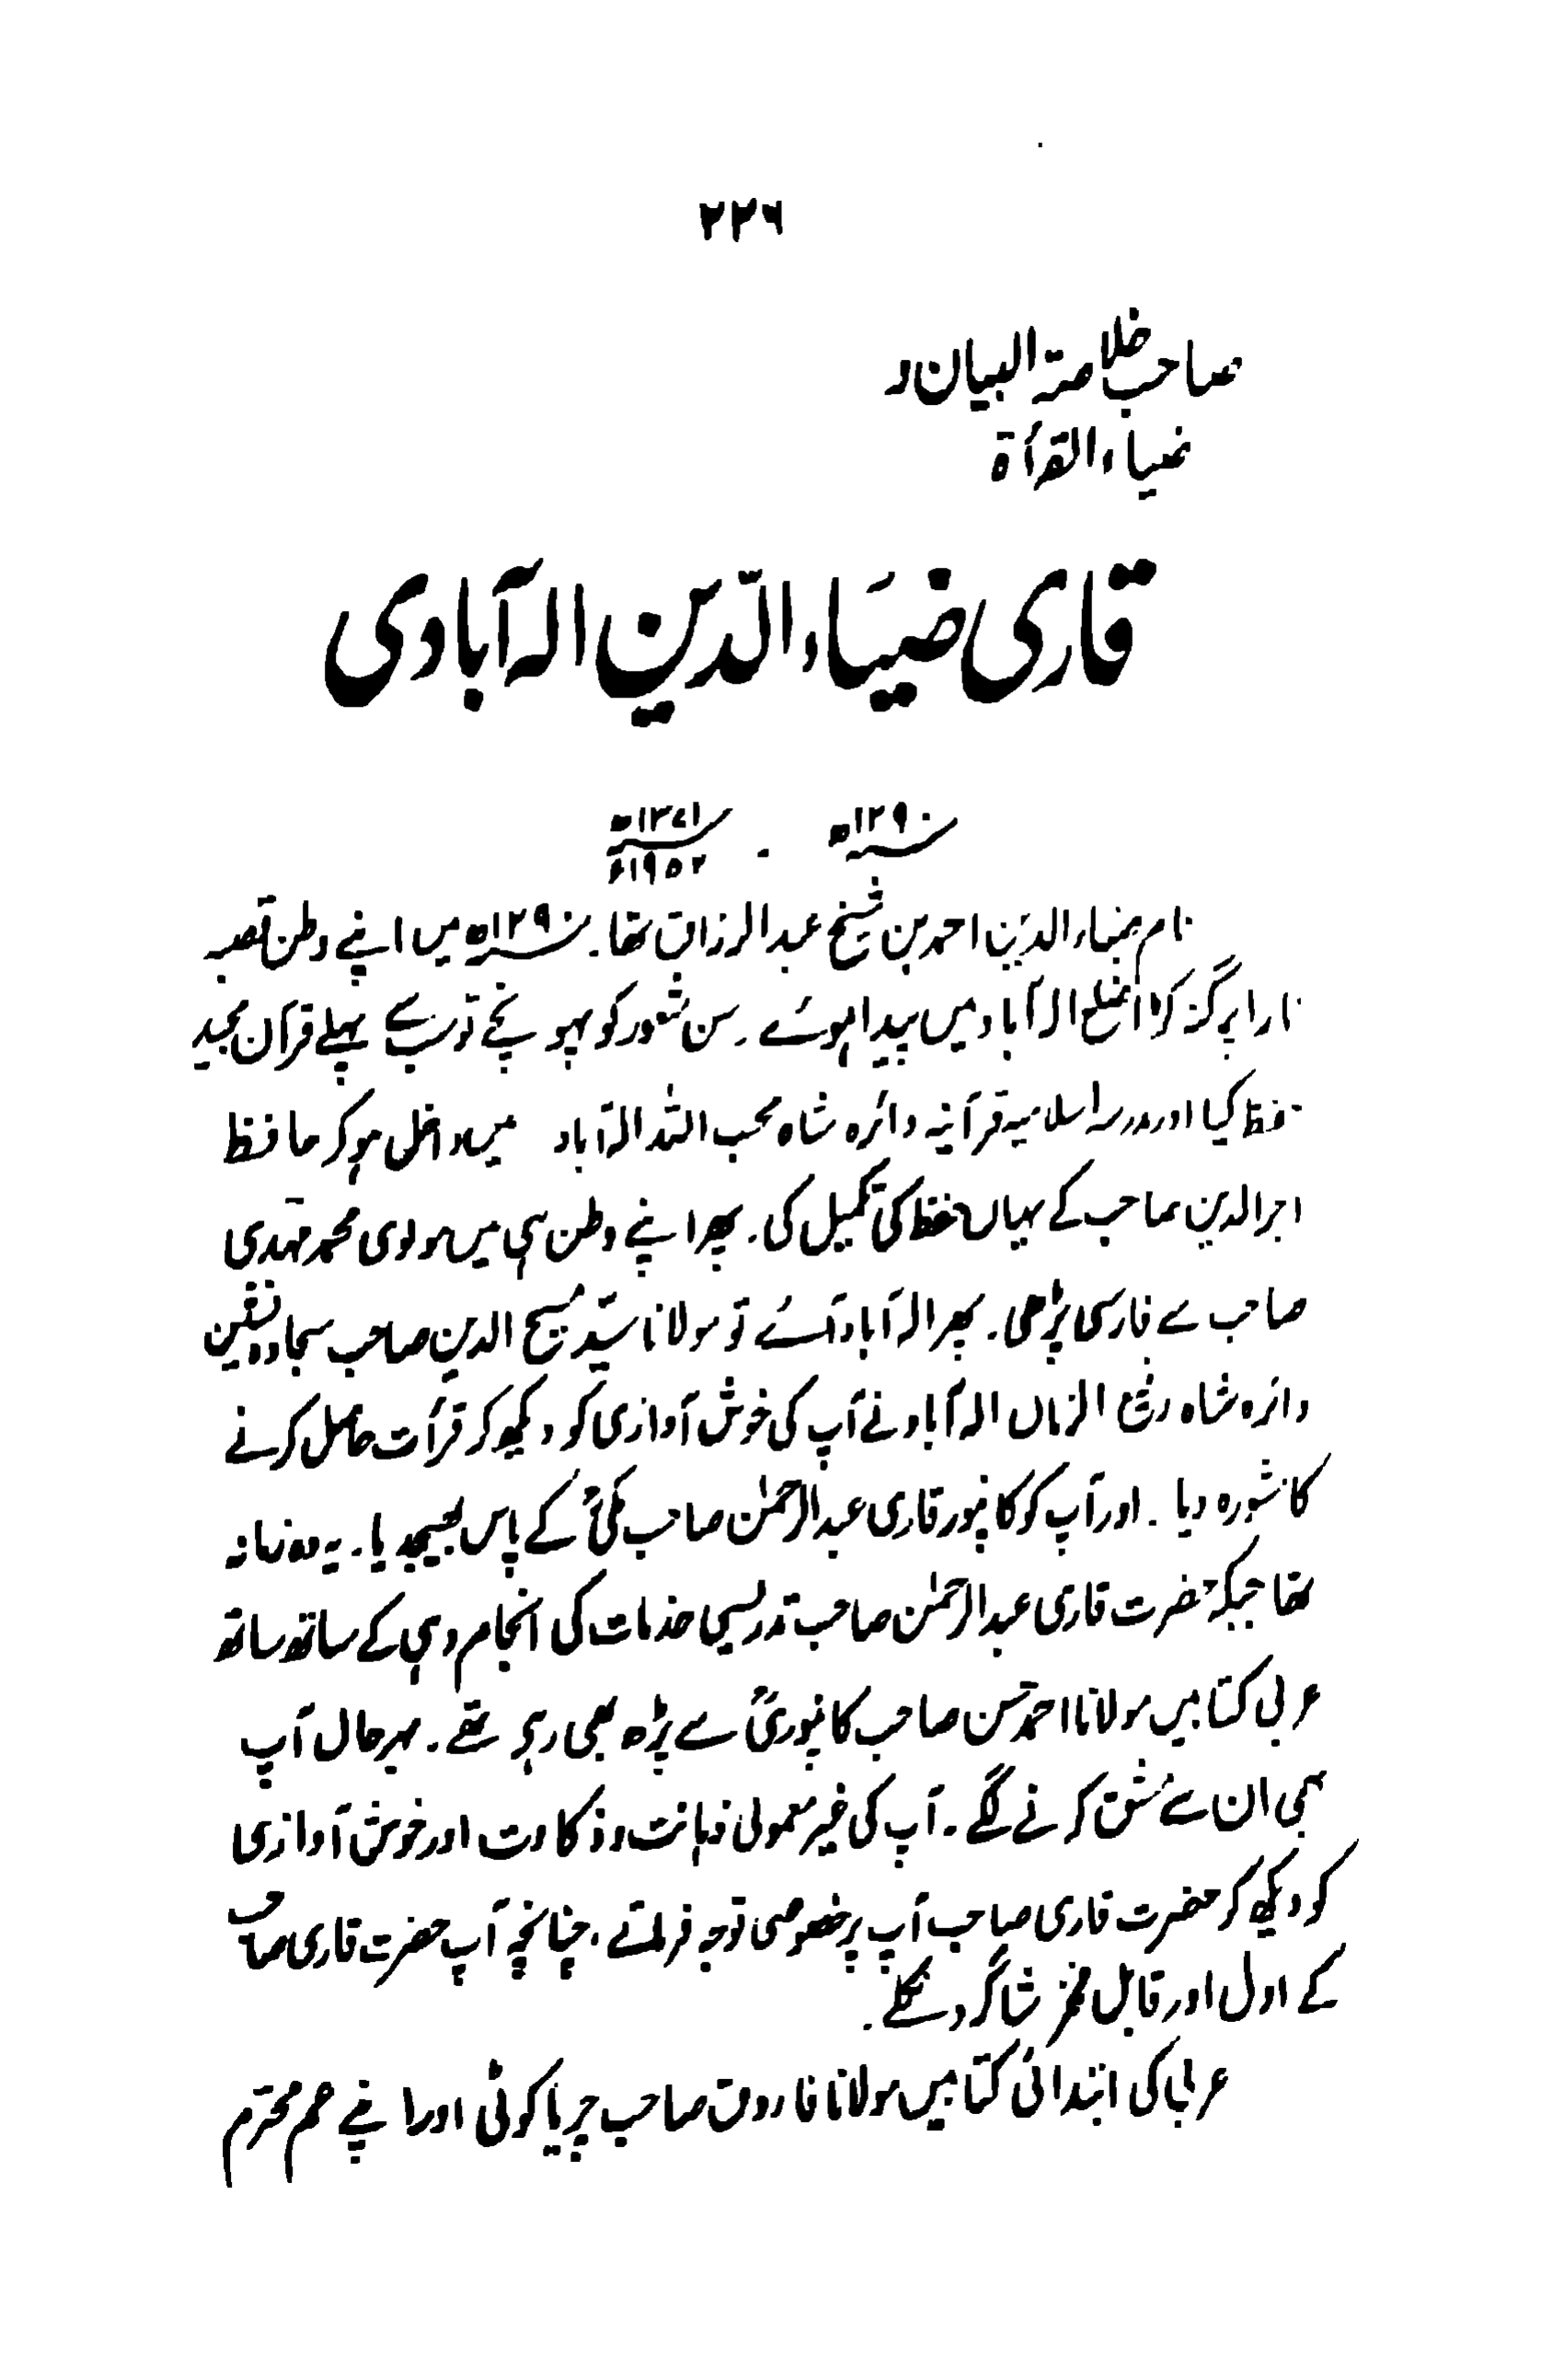 ۲۲۶
صاحب خلاصۃ البیان و
ضیاء القرأۃ
قاری ضیاء الدین الہ آبادی
سنہ ۱۲۹۰ھ - سنہ ۱۳۷۱ھ
۱۹۵۲ء
نام ضیاء الدین احمد بن شیخ عبدالرزاق تھا۔ سنہ ۱۲۹۰ھ میں اپنے وطن قصبہ
نارا پرگنہ کڑا ضلع الہ آباد میں پیدا ہوئے۔ سن شعور کو پہونچے تو سب سے پہلے قرآن مجید
حفظ کیا اور مدرسہ اسلامیہ قرآنیہ دائرہ شاہ محب اللہ الہ آباد میں داخل ہوکر حافظ
الدین صاحب کے یہاں حفظ کی تکمیل کی۔ پھر اپنے وطن ہی میں مولوی محمد مہدی
صاحب سے فارسی پڑھی۔ پھر الہ آباد آئے تو مولانا سید مسیح الدین صاحب سجادہ نشین
دائرہ شاہ رفیع الزماں الہ آباد نے آپ کی خوش آوازی کو دیکھ کر قرأت حاصل کرنے
کا مشورہ دیا۔ اور آپ کو کانپور قاری عبدالرحمٰن صاحب مکیؒ کے پاس بھیجدیا۔ یہ وہ زمانہ
تھا جبکہ حضرت قاری عبدالرحمٰن صاحب تدریسی خدمات کی انجام دہی کے ساتھ ساتھ
عربی کتابیں مولانا احمد حسن صاحب کانپوریؒ سے پڑھ بھی رہے تھے۔ بہرحال آپ
بھی ان سے مشق کرنے لگے۔ آپ کی غیر معمولی ذہانت وذکاوت اور خوش آوازی
کو دیکھ کر حضرت قاری صاحب آپ پر خصوصی توجہ فرماتے، چنانچہ آپ حضرت قاری صاحب
کے اول اور قابل فخر شاگرد نکلے۔
عربی کی ابتدائی کتابیں مولانا فاروق صاحب چریاکوٹی اور اپنے عم محترم